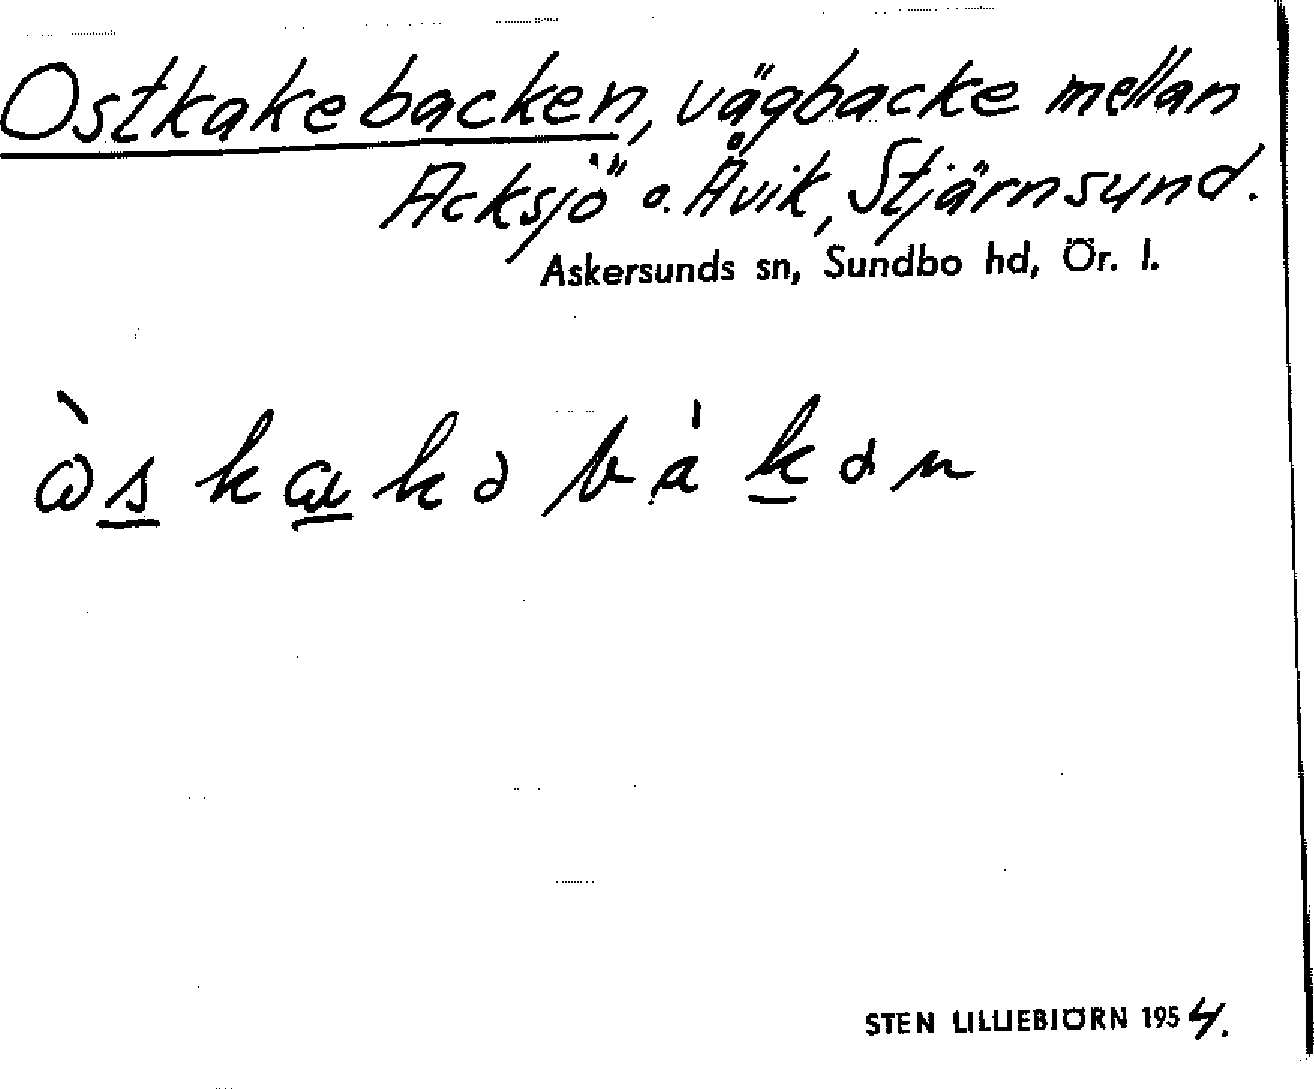 Ostkakebacken, vägbacke mellan
Acksjö o. Åvik, Stjärnsund.
Askersunds sn, Sundbo hd, Ör. l.
STEN LILLIEBJÖRN 1954.